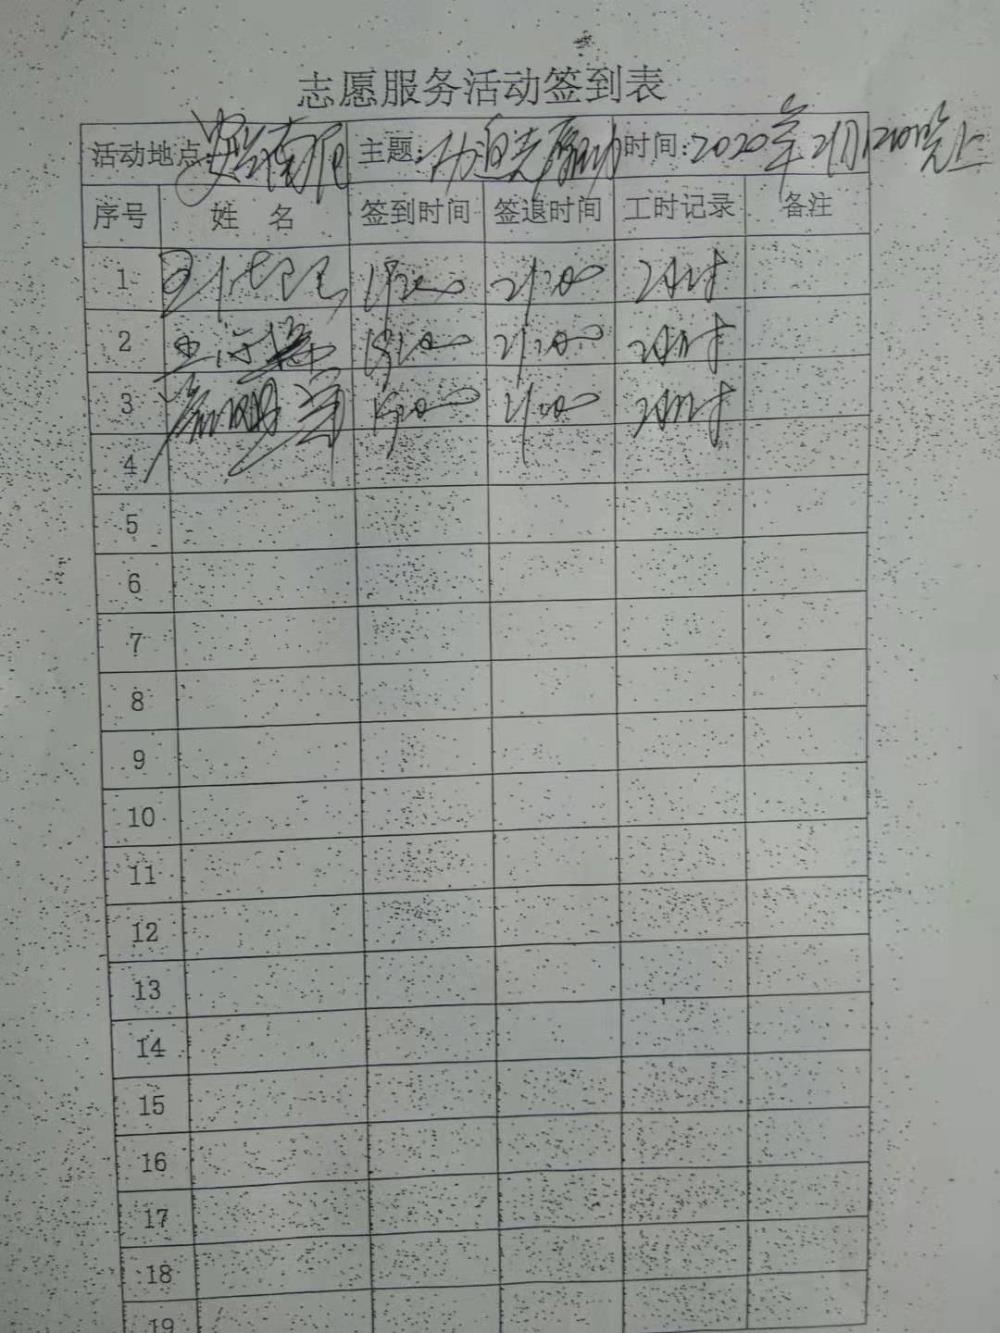 志愿服务活动签到表
活动地点: 主题: 时间:2020年2月12日晚上
序号 姓名 签到时间 签退时间 工时记录 备注
1 19:00 21:00 2小时
2 19:00 21:00 2小时
3 19:00 21:00 2小时
4
5
6
7
8
9
10
11
12
13
14
15
16
17
18
19